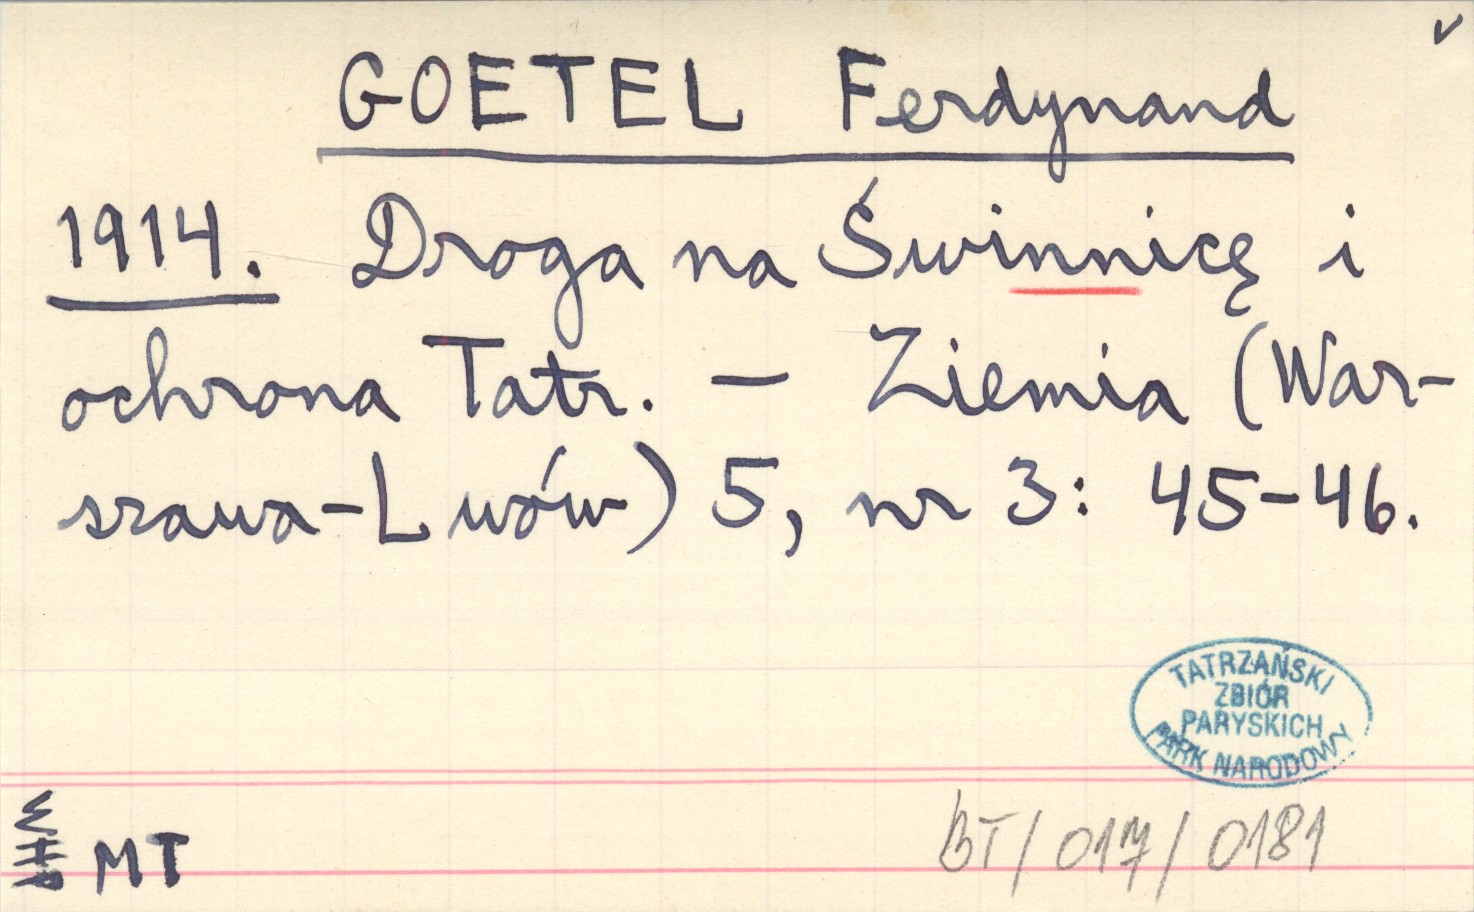 v
GOETEL Ferdynand
1914. Droga na Świnnicę i
ochrona Tatr. – Ziemia (War-
szawa-Lwów) 5, nr 3: 45-46.
TATRZAŃSKI
ZBIÓR
PARYSKICH
PARK NARODOWY
WHP
MT
BT/017/0181